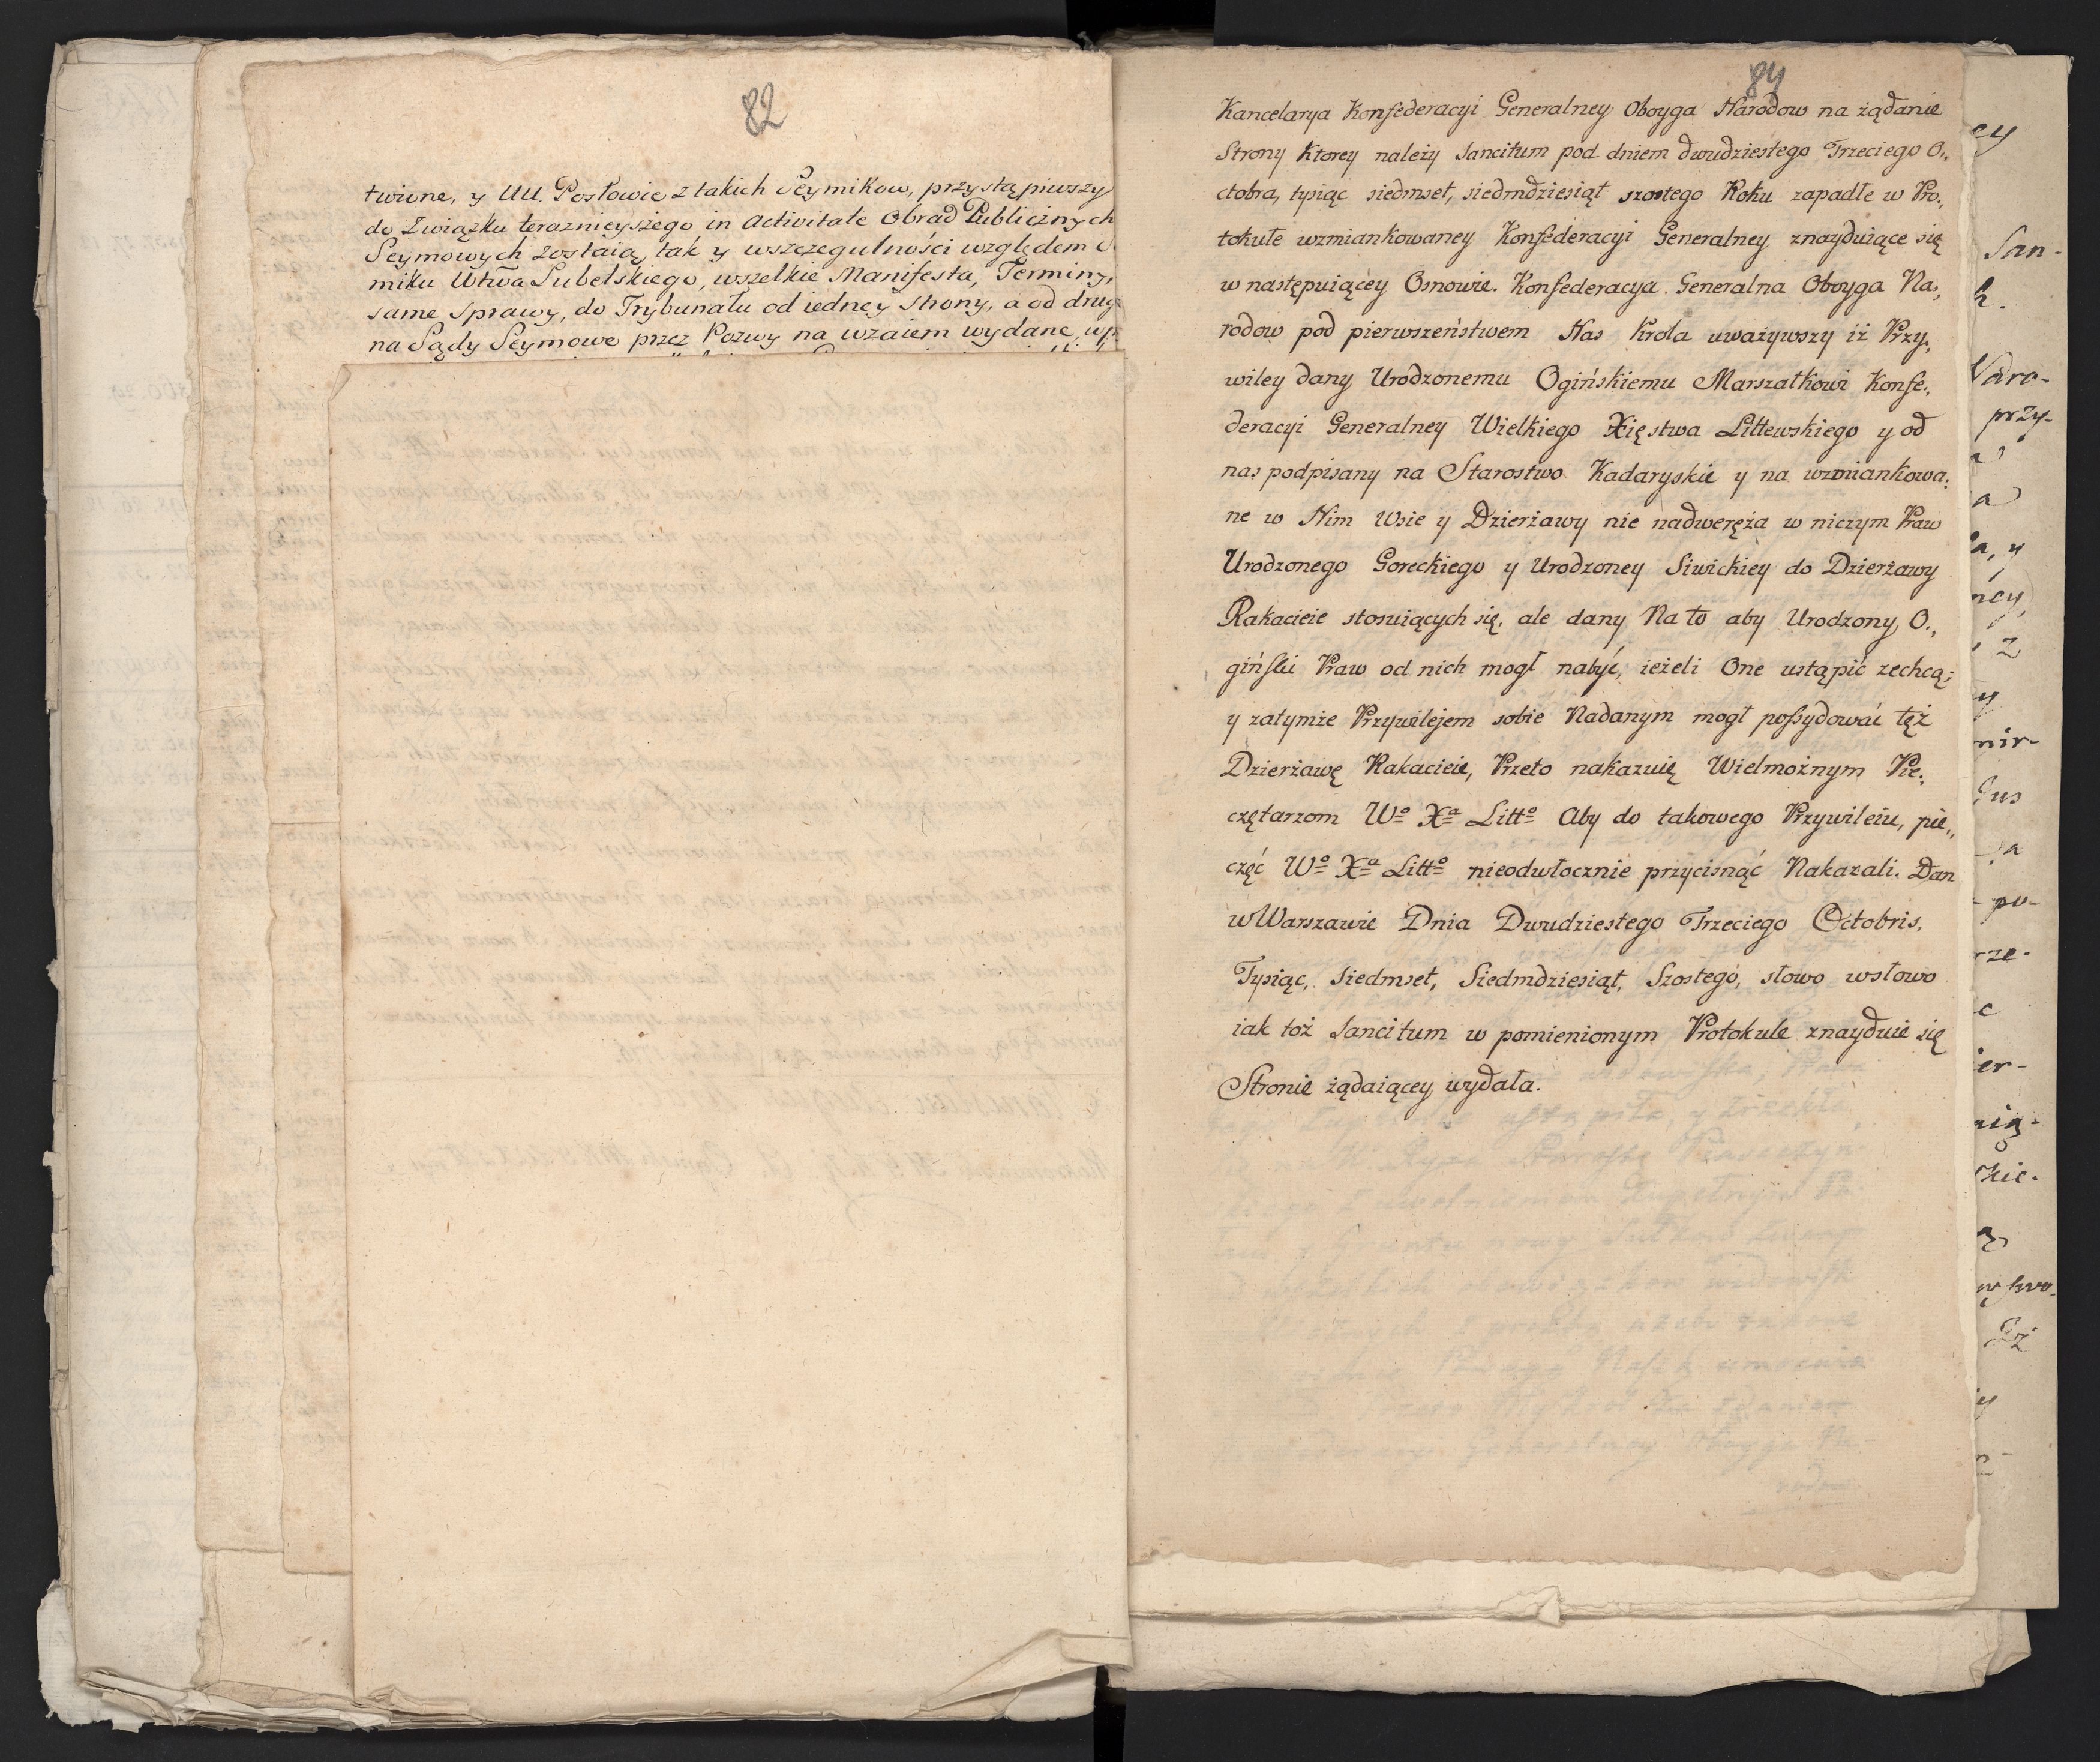 82
twione, y UU. Posłowie z takich Seymikow, przystąpiwszy
do Związku teraznieyszego in Activitate Obrad Publicznych
Seymowych zostaią, tak y wszczegulności względem
miku Wtwa Lubelskiego, wszelkie Manifesta, Terminy,
same sprawy, do Trybunału od iedney strony, a od drug
na Sądy Seymowe przez Pozwy na wzaiem wydane,
84
Kancelarya Konfederacyi Generalney Oboyga Narodow na żądanie
Strony Ktorey należy Sancitum pod dniem dwudziestego Trzeciego O„
ctobra, tysiąc siedmset, siedmdziesiąt szostego Roku zapadłe w Pro„
tokule wzmiankowaney Konfederacyi Generalney znayduiące się
w następuiącey Osnowie. Konfederacya Generalna Oboyga Na„
rodow pod pierwszeństwem Nas Krola uważywszy iż Przy„
wiley dany Urodzonemu Ogińskiemu Marszałkowi Konfe„
deracyi Generalney Wielkiego Xięstwa Littewskiego y od
nas podpisany na Starostwo Kadaryskie y na wzmiankowa„
ne w Nim Wsie y Dzierżawy nie nadweręża w niczym Praw
Urodzonego Goreckiego y Urodzoney Siwickiey do Dzierżawy
Rakacieie stosuiących się, ale dany Na to aby Urodzony O„
giński Praw od nich mogł nabyć, ieżeli One ustąpić zechcą;
y zatymże Przywilejem sobie Nadanym mogł possydować tęż
Dzierżawę Rakacieie, Przeto nakazuię Wielmożnym Pie„
czętarzom Wo Xa Litto Aby do takowego Przywileiu, pie„
częć Wo Xa Litto nieodwłocznie przycisnąć Nakazali. Dan
w Warszawie Dnia Dwudziestego Trzeciego Octobris,
Tysiąc, Siedmset, Siedmdziesiąt, Szostego, słowo wsłowo
iak toż Sancitum w pomienionym Protokule znayduie się
Stronie żądaiącey wydała.